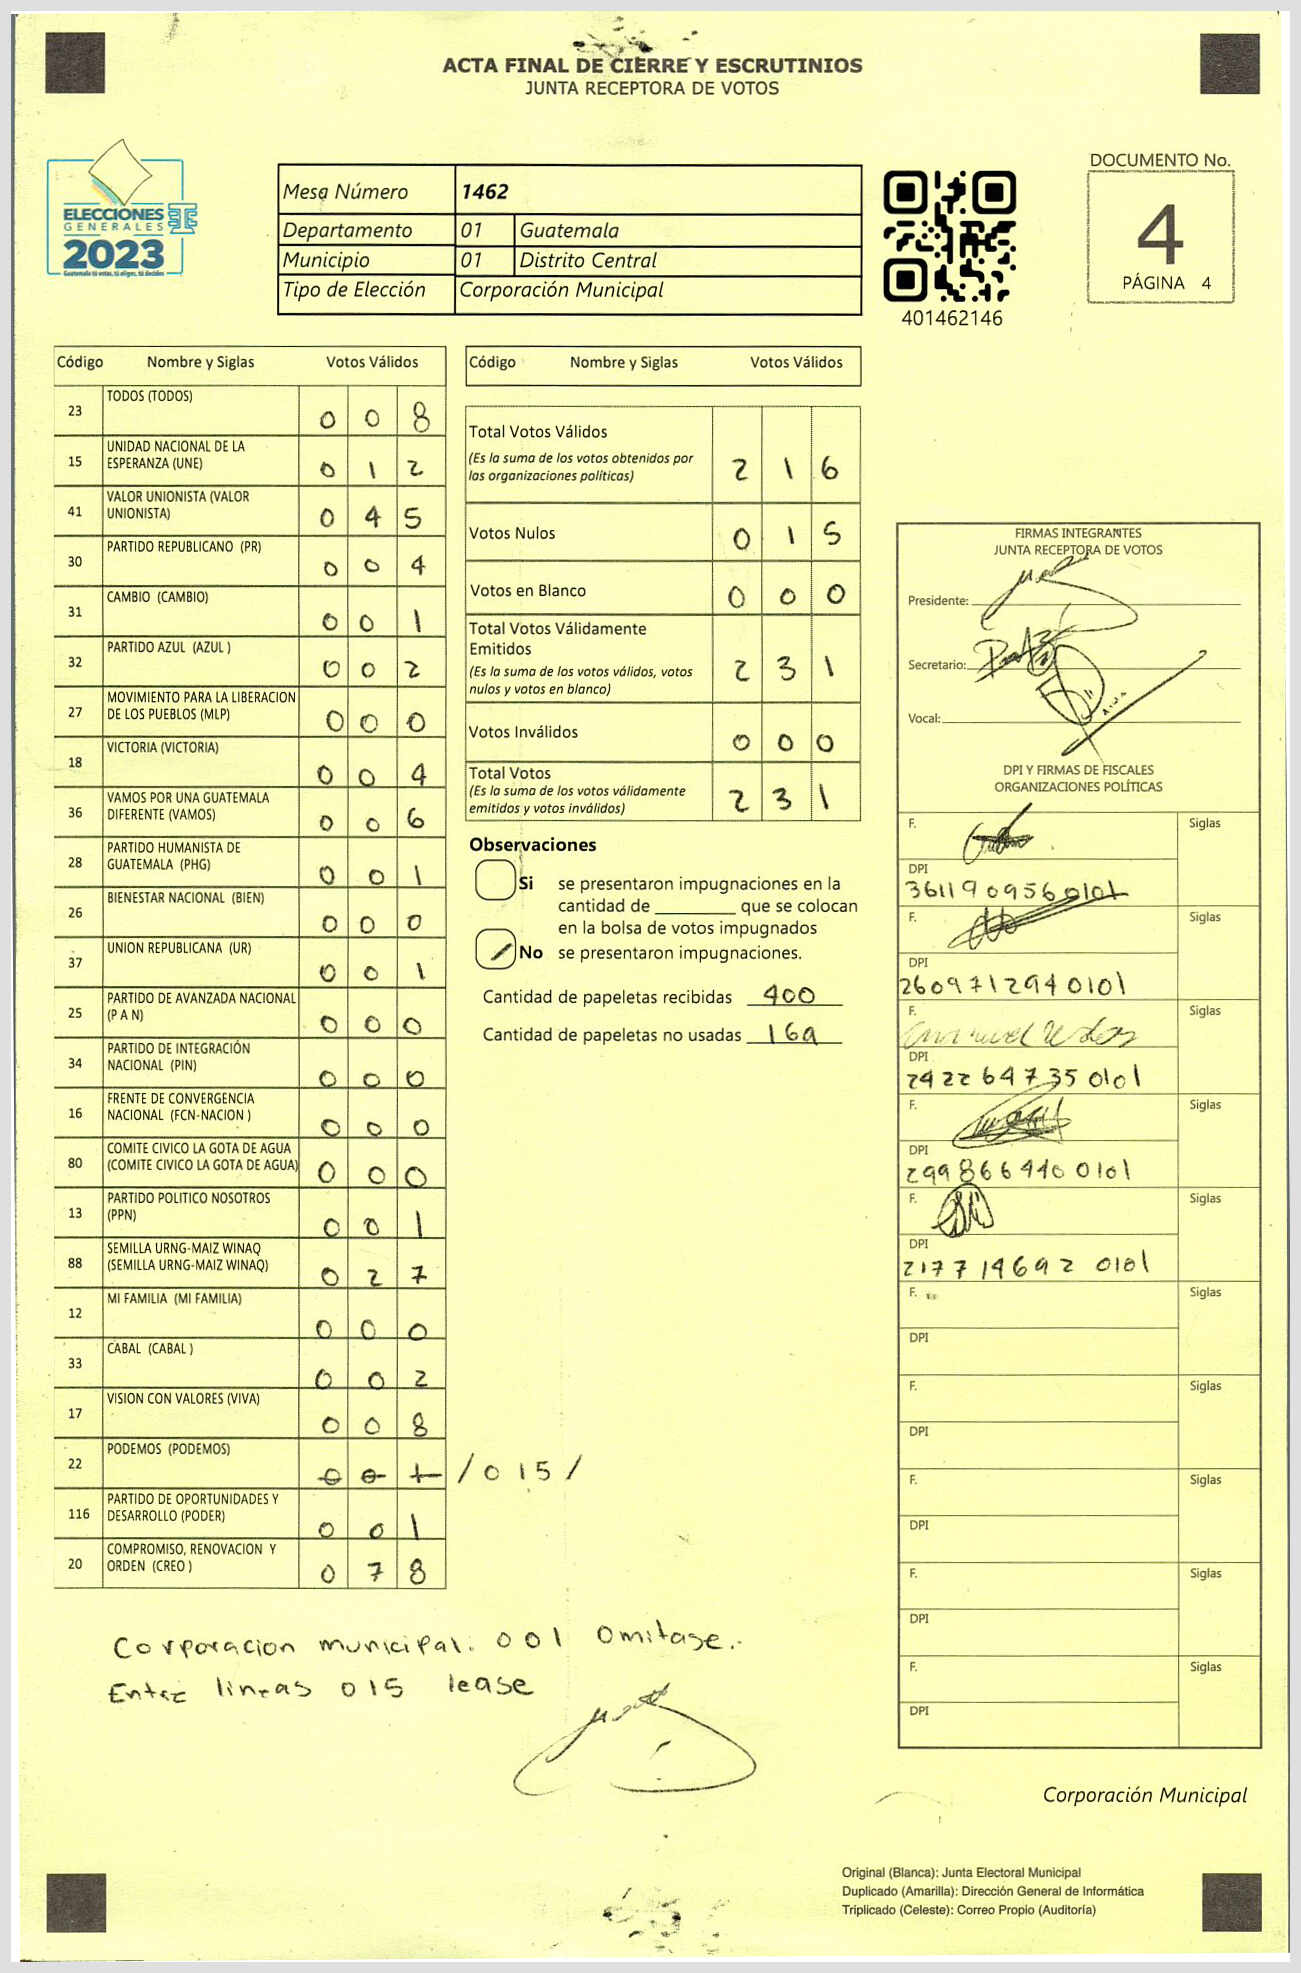 ACTA FINAL DE CIERRE Y ESCRUTINIOS
JUNTA RECEPTORA DE VOTOS
ELECCIONES
GENERALES
2023
Guatemala tú votas, tú eliges, tú decides
Mesa Número 1462
Departamento 01 Guatemala
Municipio 01 Distrito Central
Tipo de Elección Corporación Municipal
401462146
DOCUMENTO No.
4
PÁGINA 4
Código Nombre y Siglas Votos Válidos
23 TODOS (TODOS) 0 0 8
15 UNIDAD NACIONAL DE LA
ESPERANZA (UNE) 0 1 2
41 VALOR UNIONISTA (VALOR
UNIONISTA) 0 4 5
30 PARTIDO REPUBLICANO (PR) 0 0 4
31 CAMBIO (CAMBIO) 0 0 1
32 PARTIDO AZUL (AZUL ) 0 0 2
27 MOVIMIENTO PARA LA LIBERACION
DE LOS PUEBLOS (MLP) 0 0 0
18 VICTORIA (VICTORIA) 0 0 4
36 VAMOS POR UNA GUATEMALA
DIFERENTE (VAMOS) 0 0 6
28 PARTIDO HUMANISTA DE
GUATEMALA (PHG) 0 0 1
26 BIENESTAR NACIONAL (BIEN) 0 0 0
37 UNION REPUBLICANA (UR) 0 0 1
25 PARTIDO DE AVANZADA NACIONAL
(P A N) 0 0 0
34 PARTIDO DE INTEGRACIÓN
NACIONAL (PIN) 0 0 0
16 FRENTE DE CONVERGENCIA
NACIONAL (FCN-NACION ) 0 0 0
80 COMITE CIVICO LA GOTA DE AGUA
(COMITE CIVICO LA GOTA DE AGUA) 0 0 0
13 PARTIDO POLITICO NOSOTROS
(PPN) 0 0 1
88 SEMILLA URNG-MAIZ WINAQ
(SEMILLA URNG-MAIZ WINAQ) 0 2 7
12 MI FAMILIA (MI FAMILIA) 0 0 0
33 CABAL (CABAL ) 0 0 2
17 VISION CON VALORES (VIVA) 0 0 8
22 PODEMOS (PODEMOS) 0 0 1 / 0 1 5 /
116 PARTIDO DE OPORTUNIDADES Y
DESARROLLO (PODER) 0 0 1
20 COMPROMISO, RENOVACION Y
ORDEN (CREO ) 0 7 8
Código Nombre y Siglas Votos Válidos
Total Votos Válidos
(Es la suma de los votos obtenidos por
las organizaciones políticas) 2 1 6
Votos Nulos 0 1 5
Votos en Blanco 0 0 0
Total Votos Válidamente
Emitidos
(Es la suma de los votos válidos, votos
nulos y votos en blanco) 2 3 1
Votos Inválidos 0 0 0
Total Votos
(Es la suma de los votos válidamente
emitidos y votos inválidos) 2 3 1
Observaciones
Si se presentaron impugnaciones en la
cantidad de ________ que se colocan
en la bolsa de votos impugnados
No se presentaron impugnaciones.
Cantidad de papeletas recibidas 400
Cantidad de papeletas no usadas 169
FIRMAS INTEGRANTES
JUNTA RECEPTORA DE VOTOS
Presidente:
Secretario:
Vocal:
DPI Y FIRMAS DE FISCALES
ORGANIZACIONES POLÍTICAS
F. Siglas
DPI
3611909560101
F. Siglas
DPI
2609712940101
F. Siglas
DPI
2422647350101
F. Siglas
DPI
2998664400101
F. Siglas
DPI
2177146920101
F. Siglas
DPI
F. Siglas
DPI
F. Siglas
DPI
F. Siglas
DPI
F. Siglas
DPI
Corporacion municipal. 001 Omitase.-
Entre lineas 015 lease
Corporación Municipal
Original (Blanca): Junta Electoral Municipal
Duplicado (Amarilla): Dirección General de Informática
Triplicado (Celeste): Correo Propio (Auditoría)